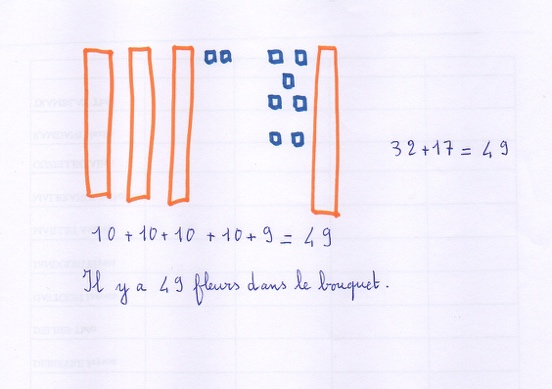 32+17 = 49
10 + 10 + 10 + 10 + 9 = 49
Il y a 49 fleurs dans le bouquet.